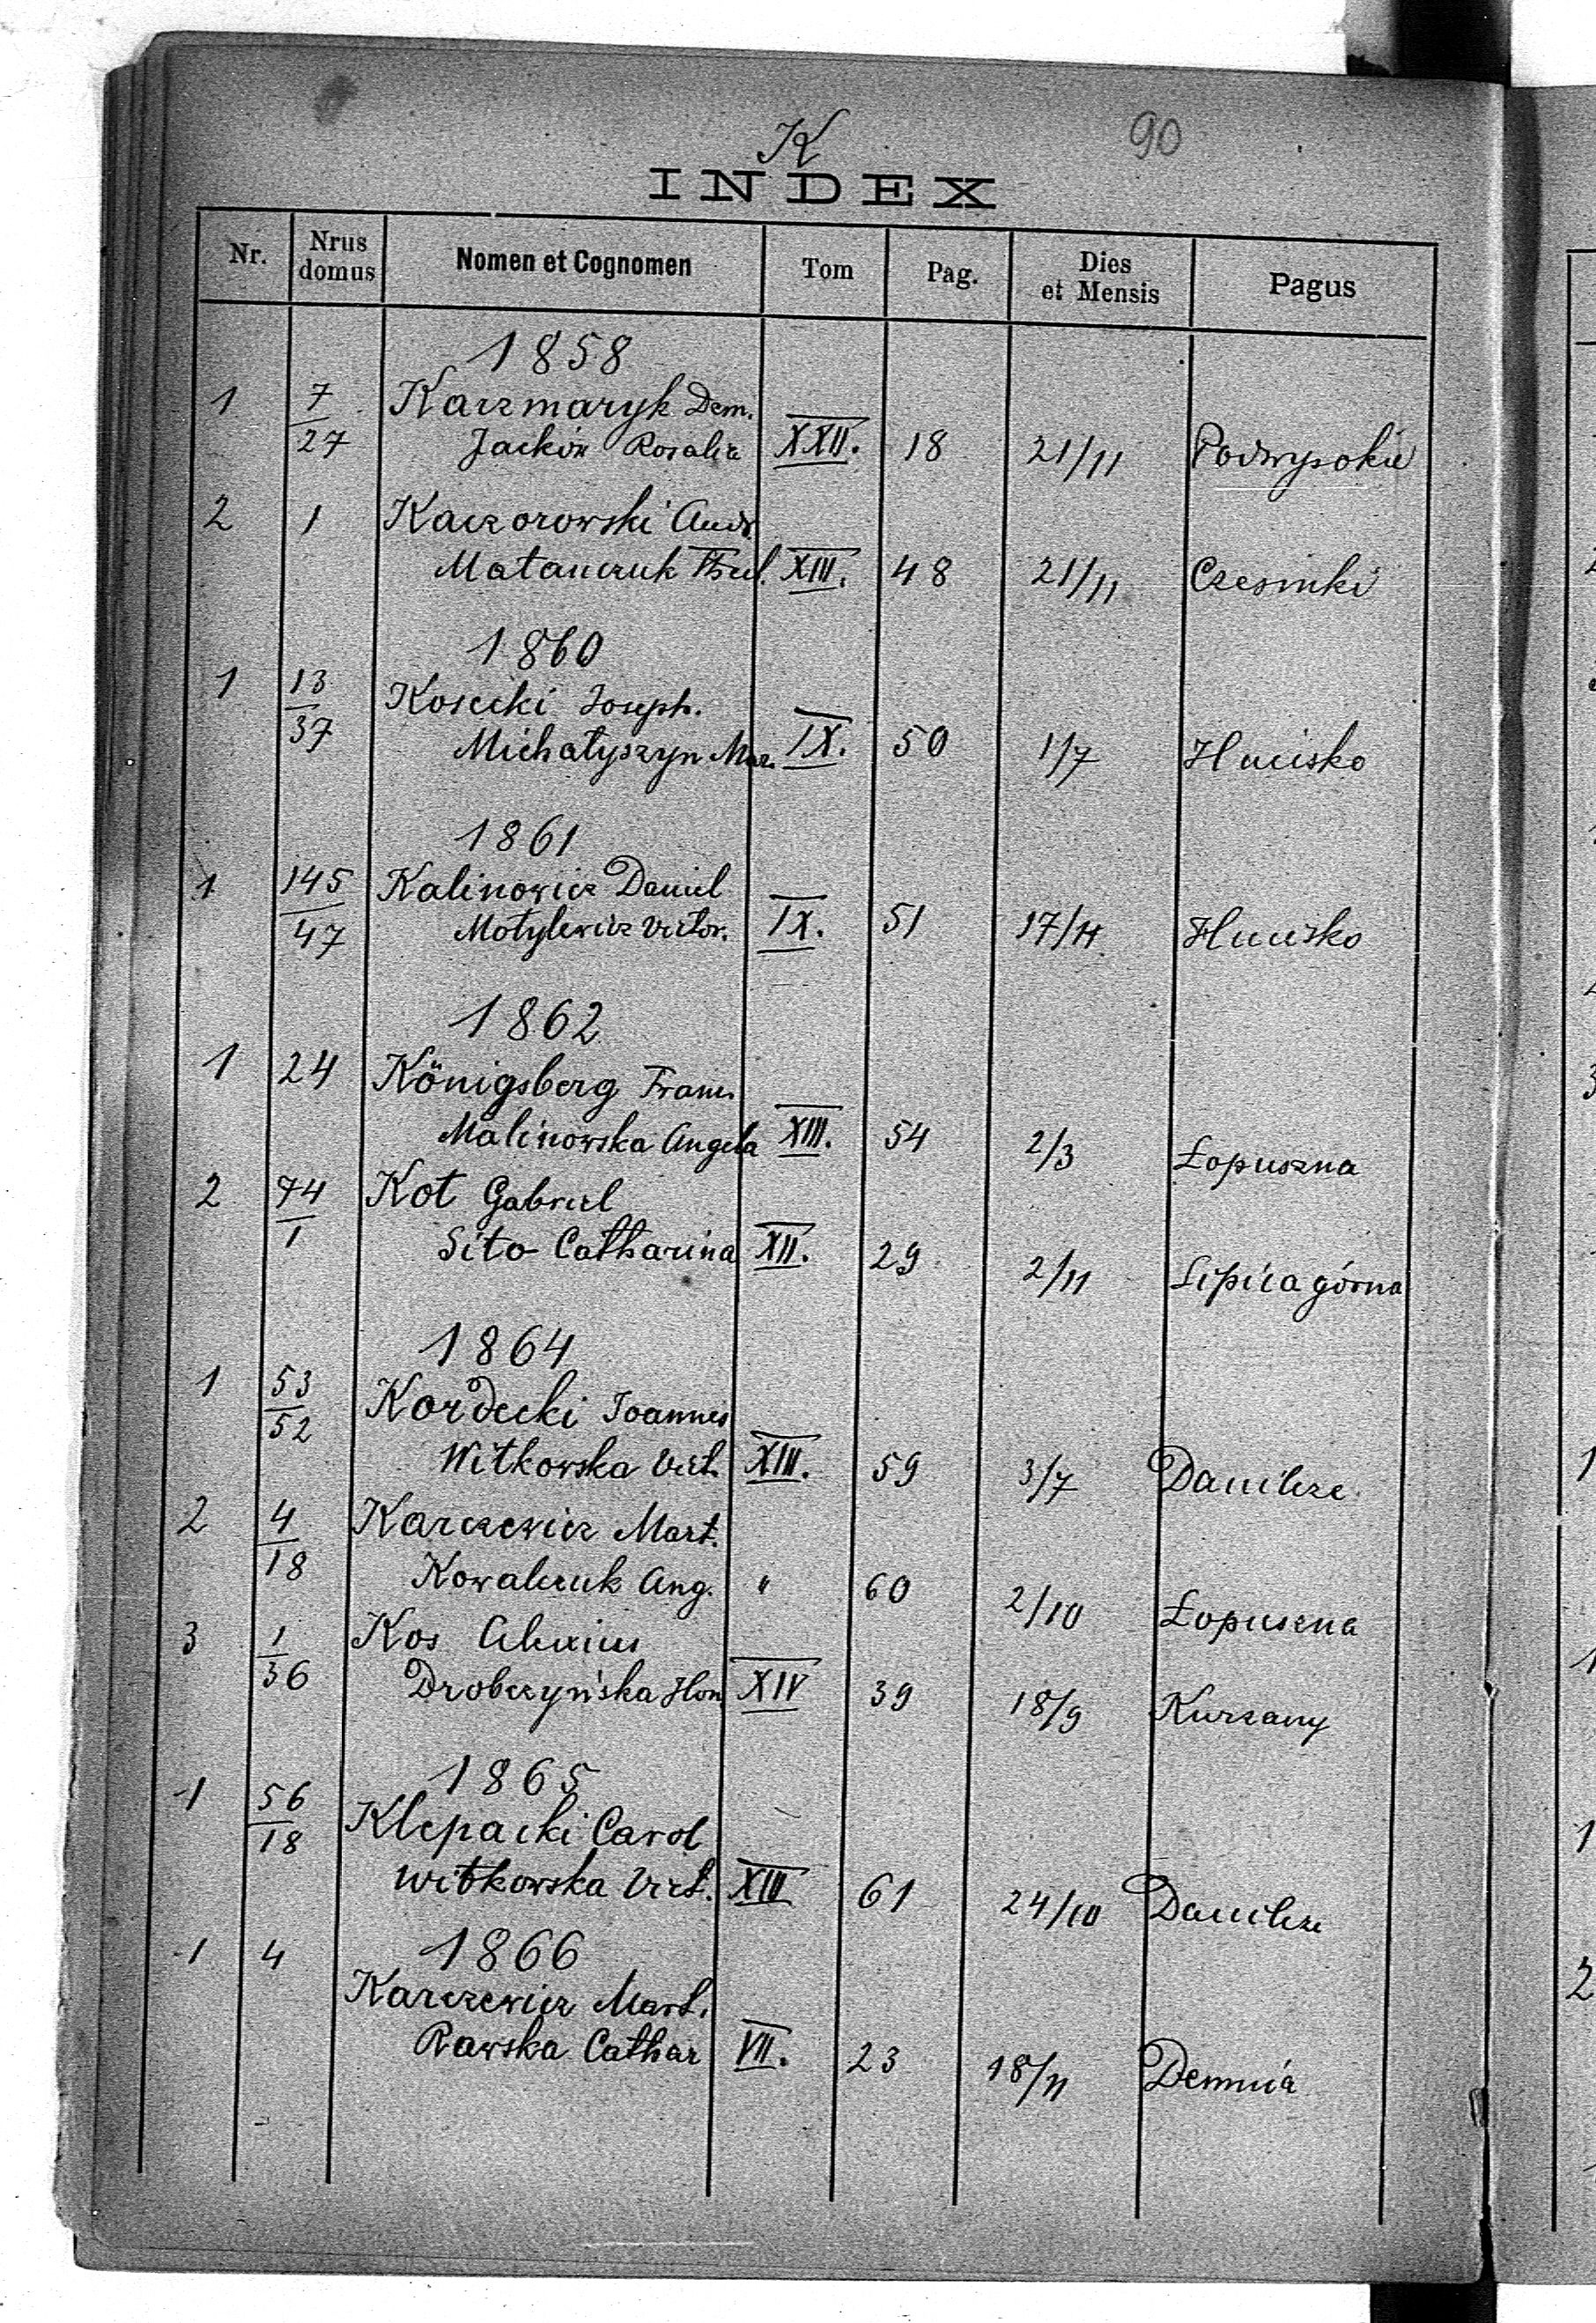 K 90
INDEX
Nr. Nrus domus Nomen et Cognomen Tom Pag. Dies et Mensis Pagus
1858
1 7 Kaczmaryk Dem.
27 Jackón Rosalia XXII. 18 21/11 Podwysokie
2 1 Kaczorowski Andr.
Matanczuk XIII. 48 21/11 Czesniki
1860
1 13 Kosecki Joseph.
37 Michatyszyn Mar. IX. 50 1/7 Hucisko
1861
1 145 Kalinowicz Daniel
47 Motylewicz Victor. IX. 51 17/11 Hucisko
1862
1 24 Königsberg Franc.
Malinowska Angela XIII. 54 2/3 Łopuszna
2 74 Kot Gabriel
1 Sito Catharina XII. 29 2/11 Lipica górna
1864
1 53 Kordecki Joannes
52 Witkowska Vict. XIII. 59 3/7 Danilcze
2 4 Karczewicz Mart.
18 Kowalczuk Ang. " 60 2/10 Łopuszna
3 1 Kos Alexius
36 Drobczyńska Hon XIV 39 18/9 Kurzany
1865
1 56 Klepacki Carol
18 Witkowska Vict. XIII 61 24/10 Danilcze
1 4 1866
Karczewicz Mart.
Rawska Cathar VII. 23 18/11 Demnia